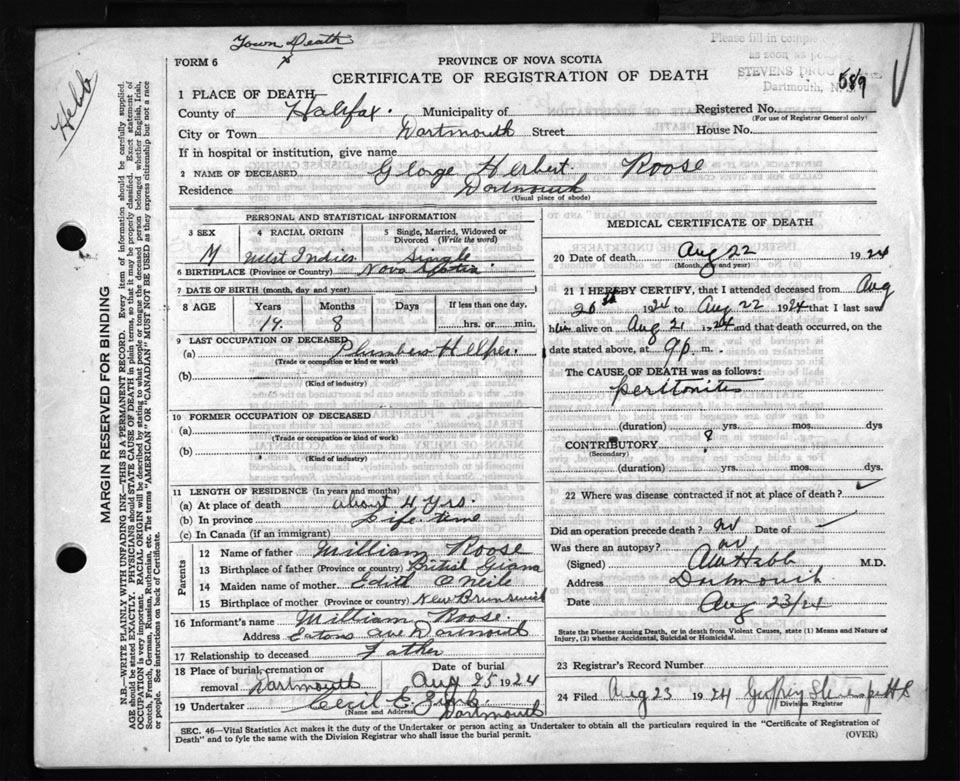 Town Death
FORM 6
PROVINCE OF NOVA SCOTIA
CERTIFICATE OF REGISTRATION OF DEATH
Please fill in
as soon as
STEVENS DRUG
Dartmouth, N.
589
Hebb
MARGIN RESERVED FOR BINDING
N.B.—WRITE PLAINLY WITH UNFADING INK—THIS IS A PERMANENT RECORD. Every item of information should be carefully supplied.
AGE should be stated EXACTLY. PHYSICIANS should STATE CAUSE OF DEATH in plain terms, that it may be properly classified. Exact statement of
OCCUPATION is very important. RACIAL ORIGIN will be described by stating to what people or tongue the deceased person belonged whether English, Irish,
Scotch, French, German, Russian, Ruthenian, etc. The terms "AMERICAN" OR "CANADIAN" MUST NOT BE USED as they express citizenship but not a race
or people. See instructions on back of Certificate.
1 PLACE OF DEATH
County of Halifax. Municipality of Registered No.
(For use of Registrar General only)
City or Town Dartmouth Street House No.
If in hospital or institution, give name
2 NAME OF DECEASED George Herbert Roose
Residence Dartmouth
(Usual place of abode)
PERSONAL AND STATISTICAL INFORMATION
3 SEX 4 RACIAL ORIGIN 5 Single, Married, Widowed or
Divorced (Write the word)
M West Indies Single
6 BIRTHPLACE (Province or Country) Nova Scotia
7 DATE OF BIRTH (month, day and year)
8 AGE Years Months Days If less than one day,
19. 8 hrs. or min.
9 LAST OCCUPATION OF DECEASED
(a) Plumbers Helper.
(Trade or occupation or kind or work)
(b)
(Kind of industry)
10 FORMER OCCUPATION OF DECEASED
(a)
(Trade or occupation or kind of work)
(b)
(Kind of industry)
11 LENGTH OF RESIDENCE (In years and months)
(a) At place of death about 4 yrs.
(b) In province Life time
(c) In Canada (if an immigrant)
Parents
12 Name of father William Roose
13 Birthplace of father (Province or country) British Giana
14 Maiden name of mother Edith O'Neile
15 Birthplace of mother (Province or country) New Brunswick
16 Informant's name William Roose.
Address Eatons Ave Dartmouth
17 Relationship to deceased Father
18 Place of burial, cremation or Date of burial
removal Dartmouth Aug 25 1924
19 Undertaker Cecil E.
(Name and Address) Dartmouth
MEDICAL CERTIFICATE OF DEATH
20 Date of death Aug 22 1924
(Month, day and year)
21 I HEREBY CERTIFY, that I attended deceased from Aug
20th 1924 to Aug 22 1924 that I last saw
him alive on Aug 21 1924 and that death occurred, on the
date stated above, at 9 p. m.
The CAUSE OF DEATH was as follows:
peritonitis
(duration) yrs. mos. dys
CONTRIBUTORY ?
(Secondary)
(duration) yrs. mos. dys.
22 Where was disease contracted if not at place of death?
Did an operation precede death? no Date of
Was there an autopsy? no
(Signed) Hebb M.D.
Address Dartmouth
Date Aug 23/24
State the Disease causing Death, or in death from Violent Causes, state (1) Means and Nature of
Injury, (2) whether Accidental, Suicidal or Homicidal.
23 Registrar's Record Number
24 Filed Aug 23 1924
Division Registrar
SEC. 46—Vital Statistics Act makes it the duty of the Undertaker or person acting as Undertaker to obtain all the particulars required in the "Certificate of Registration of
Death" and to fyle the same with the Division Registrar who shall issue the burial permit.
(OVER)